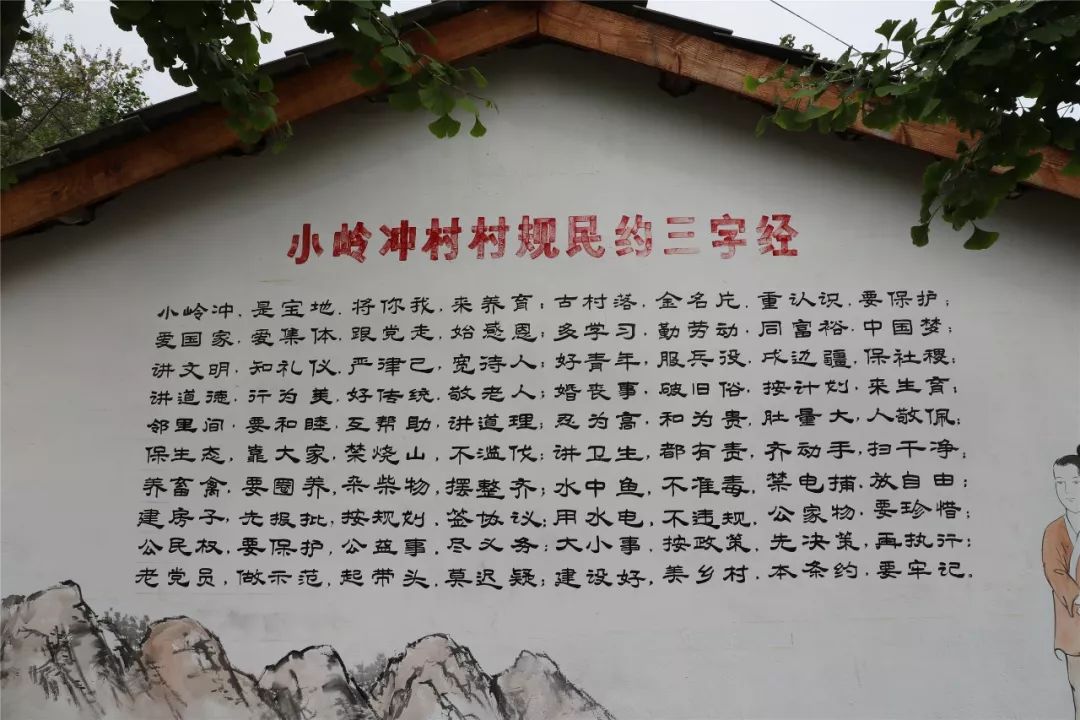 小岭冲村村规民约三字经
小岭冲，是宝地，将你我，来养育；古村落，金名片，重认识，要保护；
爱国家，爱集体，跟党走，始感恩；多学习，勤劳动，同富裕，中国梦；
讲文明，知礼仪，严津己，宽待人；好青年，服兵役，戍边疆，保社稷；
讲道德，行为美，好传统，敬老人；婚丧事，破旧俗，按计划，来生育；
邻里间，要和睦，互帮助，讲道理；忍为高，和为贵，肚量大，人敬佩；
保生态，靠大家，禁烧山，不滥伐；讲卫生，都有责，齐动手，扫干净；
养畜禽，要圈养，杂柴物，摆整齐；水中鱼，不准毒，禁电捕，放自由；
建房子，先报批，按规划，签协议；用水电，不违规，公家物，要珍惜；
公民权，要保护，公益事，尽义务；大小事，按政策，先决策，再执行；
老党员，做示范，起带头，莫迟疑；建设好，美乡村，本条约，要牢记。